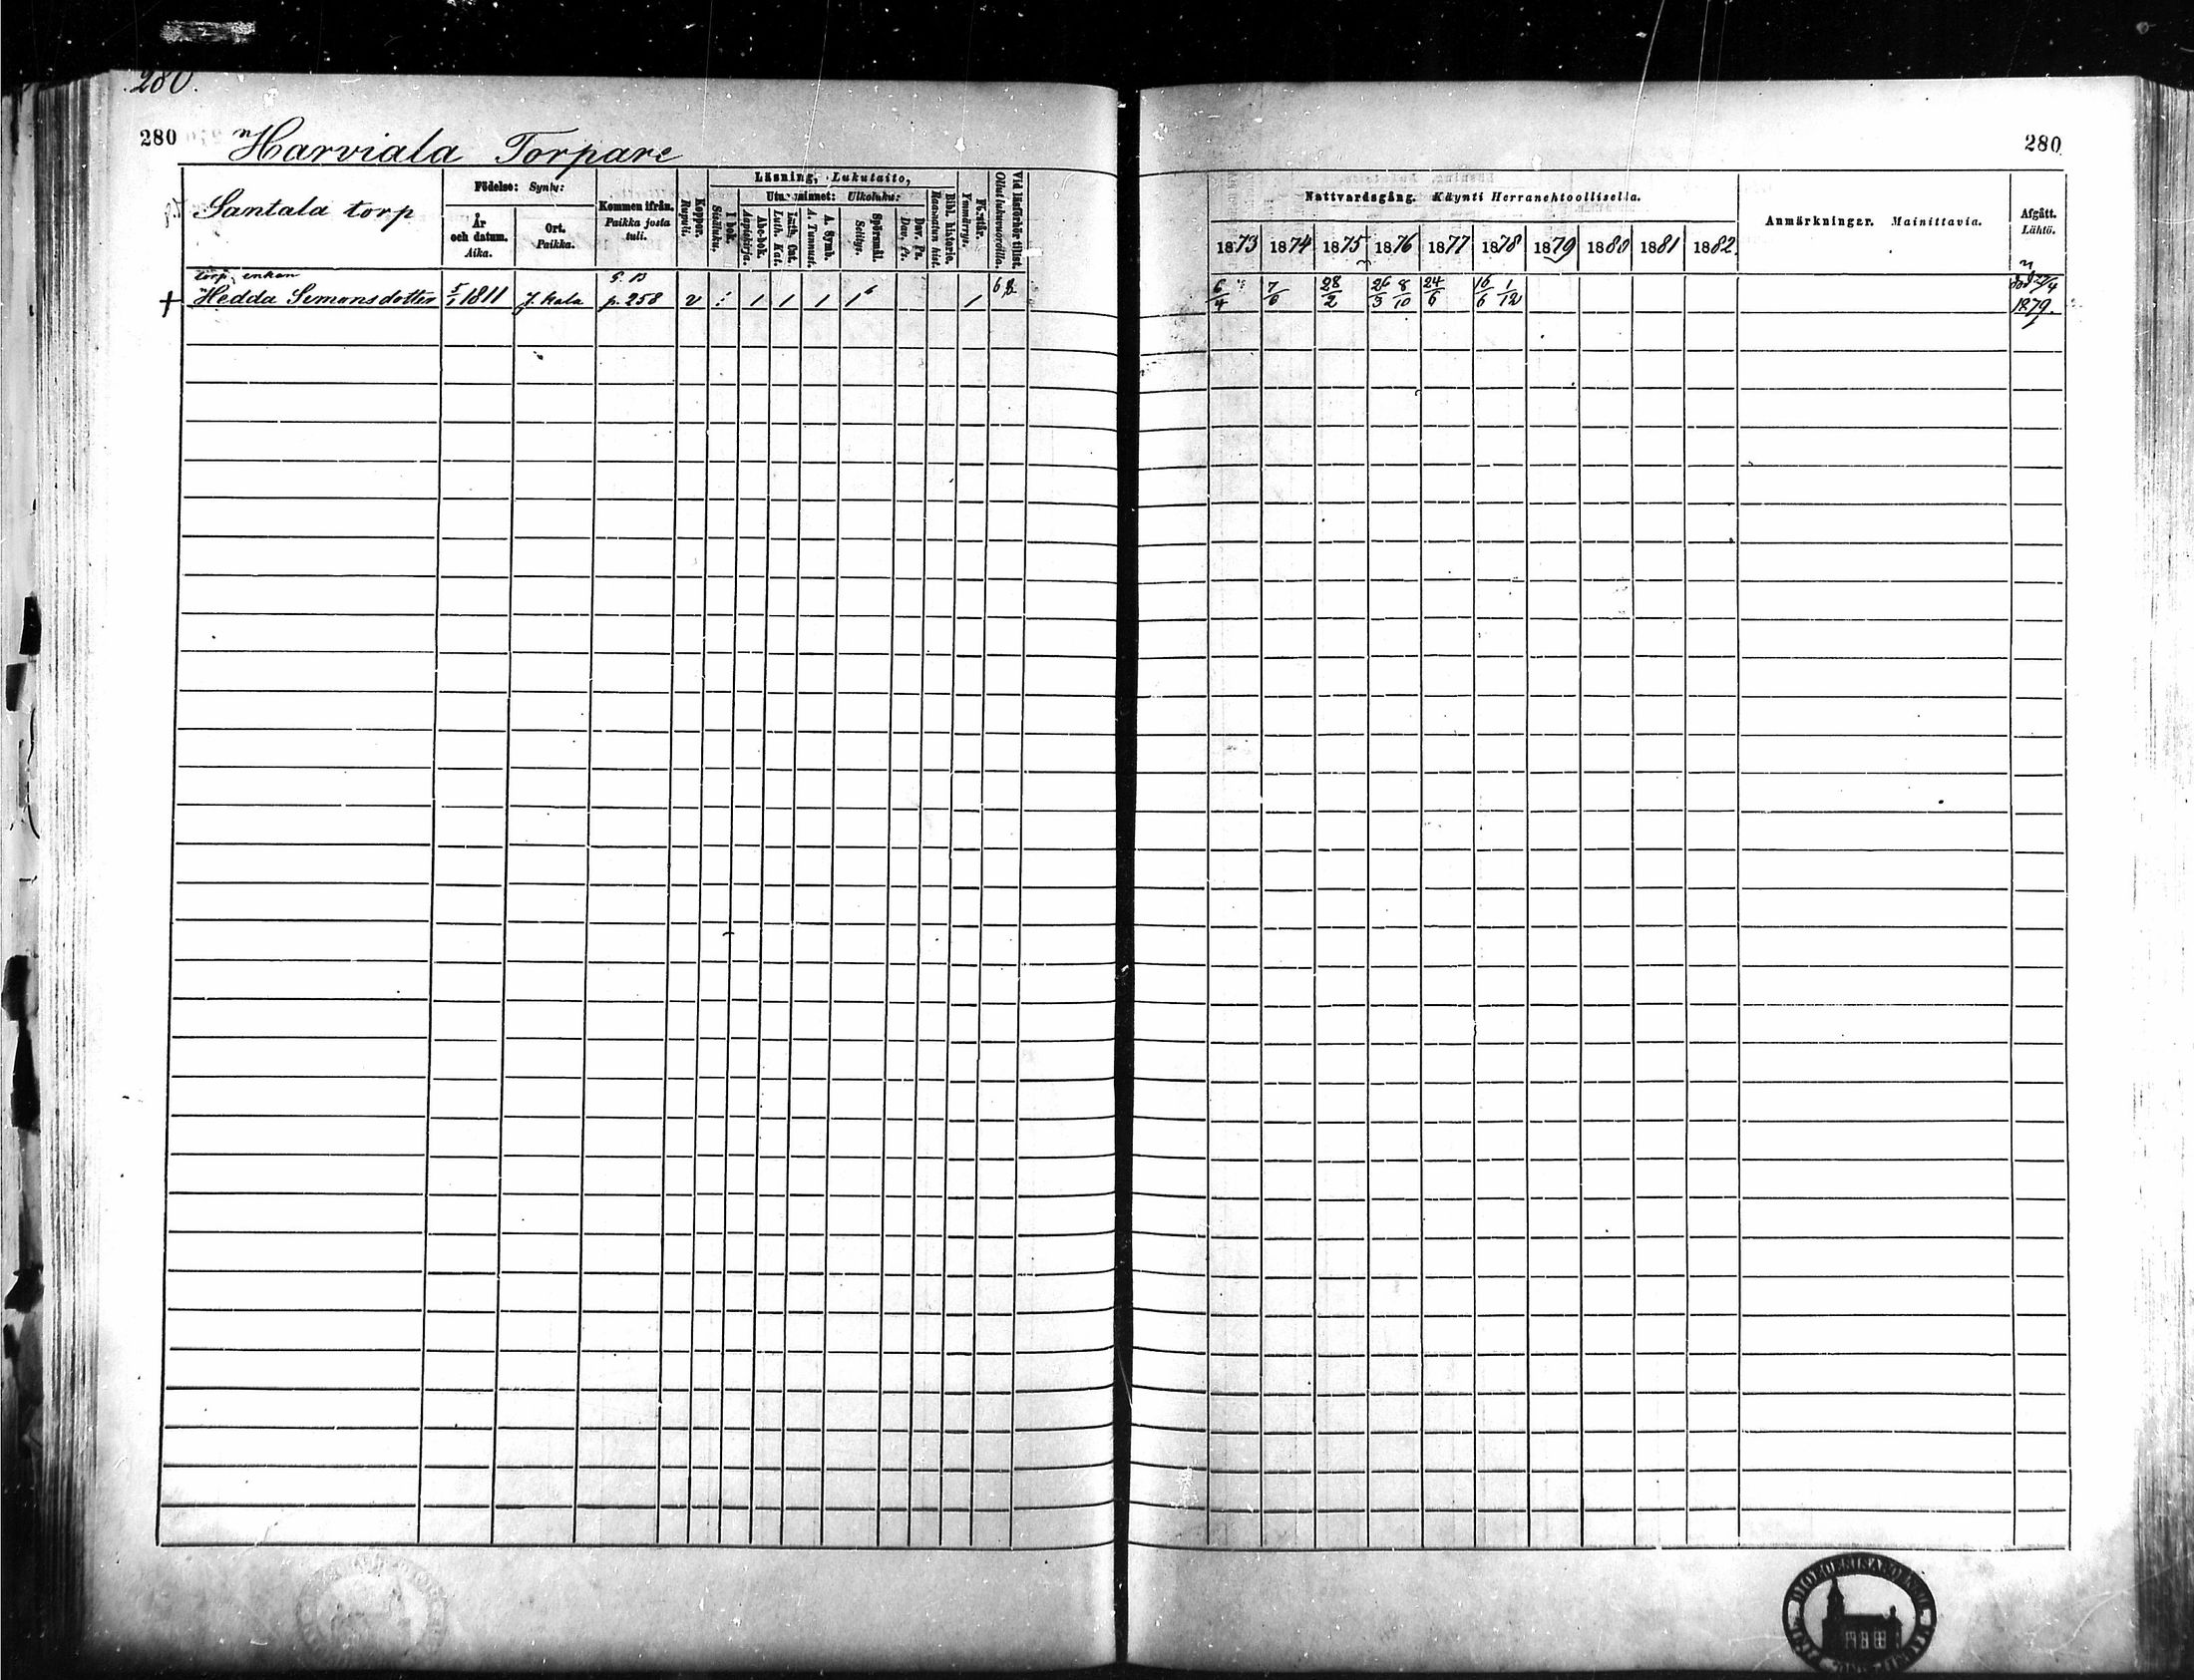 280.
280 Harviala Torpare
Santala torp
Födelse: Synty:
År och datum. Aika.
Ort. Paikka.
Kommen ifrån. Paikka josta tuli.
Koppor. Rupuli.
Läsning, Lukutaito,
I bok. Sisäluku.
Utur minnet: Ulkoluku:
Abc-bok. Aapiskirja.
Luth. Cat. Luth. Kat.
A. Symb. A. Tunnust.
Spörsmål. Selitys.
Dav. Ps. Dav. Ps.
Bibl. historia. Raamatun hist.
Förstår. Ymmärrys.
Vid läsförhör tillst. Ollut lukuvuoroilla.
torp. enkan
† Hedda Simonsdotter 5/1 1811 J. Kala S. B p. 258 v 1 1 1 1 1
280
Nattvardsgång. Käynti Herranehtoollisella.
1873 1874 1875 1876 1877 1878 1879 1880 1881 1882
Anmärkningar. Mainittavia.
Afgått. Lähtö.
6/4 7/6 28/2 26/3 8/10 24/6 16/6 1/12
1879.